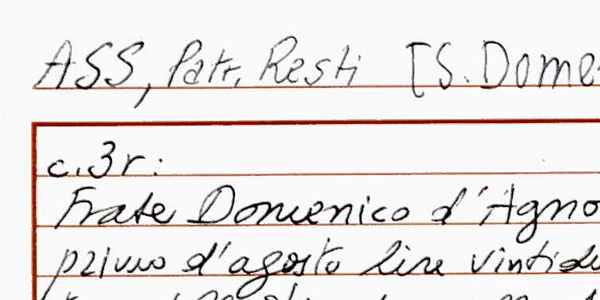 ASS, Patr. Resti [S. Dome
c. 3r:
Frate Domenico d'Agno
primo d'agosto lire vintidu